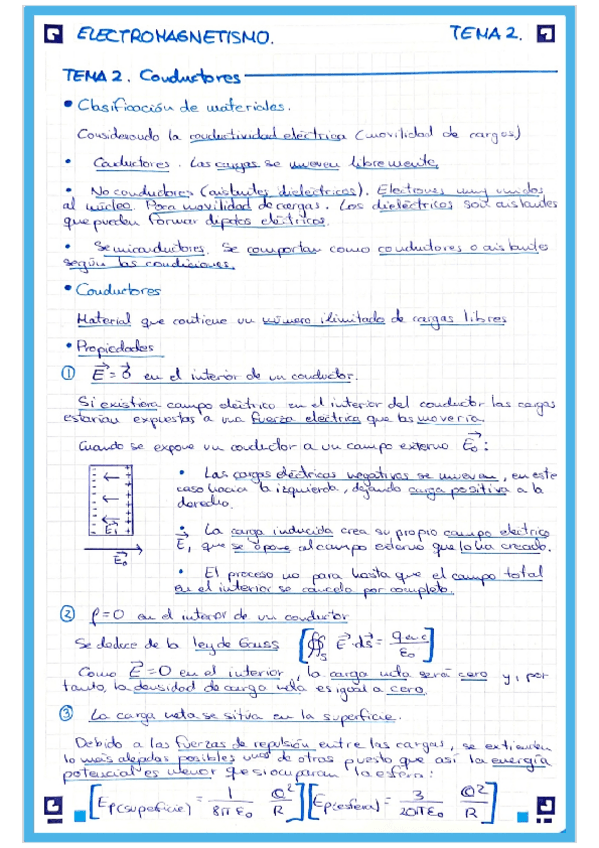 ELECTROMAGNETISMO.
TEMA 2.
TEMA 2. Conductores
• Clasificación de materiales.
Considerando la conductividad eléctrica (movilidad de cargas)
• Conductores. Las cargas se mueven libremente.
• No conductores (aislantes, dieléctricos). Electrones muy unidos
al núcleo. Poca movilidad de cargas. Los dieléctricos son aislantes
que pueden formar dipolos eléctricos.
• Semiconductores. Se comportan como conductores o aislantes
según las condiciones.
• Conductores
Material que contiene un número ilimitado de cargas libres
• Propiedades
① E⃗=0⃗ en el interior de un conductor.
Si existiera campo eléctrico en el interior del conductor las cargas
estarían expuestas a una fuerza eléctrica que las movería.
Cuando se expone un conductor a un campo externo E⃗₀:
• Las cargas eléctricas negativas se mueven, en este
caso hacia la izquierda, dejando carga positiva a la
derecha.
• La carga inducida crea su propio campo eléctrico
E⃗₁, que se opone al campo externo que lo ha creado.
• El proceso no para hasta que el campo total
en el interior se cancela por completo.
E⃗₁
E⃗₀
② ρ=0 en el interior de un conductor
Se deduce de la ley de Gauss [∯s E⃗·ds⃗ = q enc / ε₀]
Como E⃗=0 en el interior, la carga neta será cero y, por
tanto, la densidad de carga neta es igual a cero.
③ La carga neta se sitúa en la superficie.
Debido a las fuerzas de repulsión entre las cargas, se extienden
lo más alejadas posibles unas de otras puesto que así la energía
potencial es menor que si ocuparan la esfera:
[Ep(superficie) = 1/8πε₀ Q²/R] [Ep(esfera) = 3/20πε₀ Q²/R]